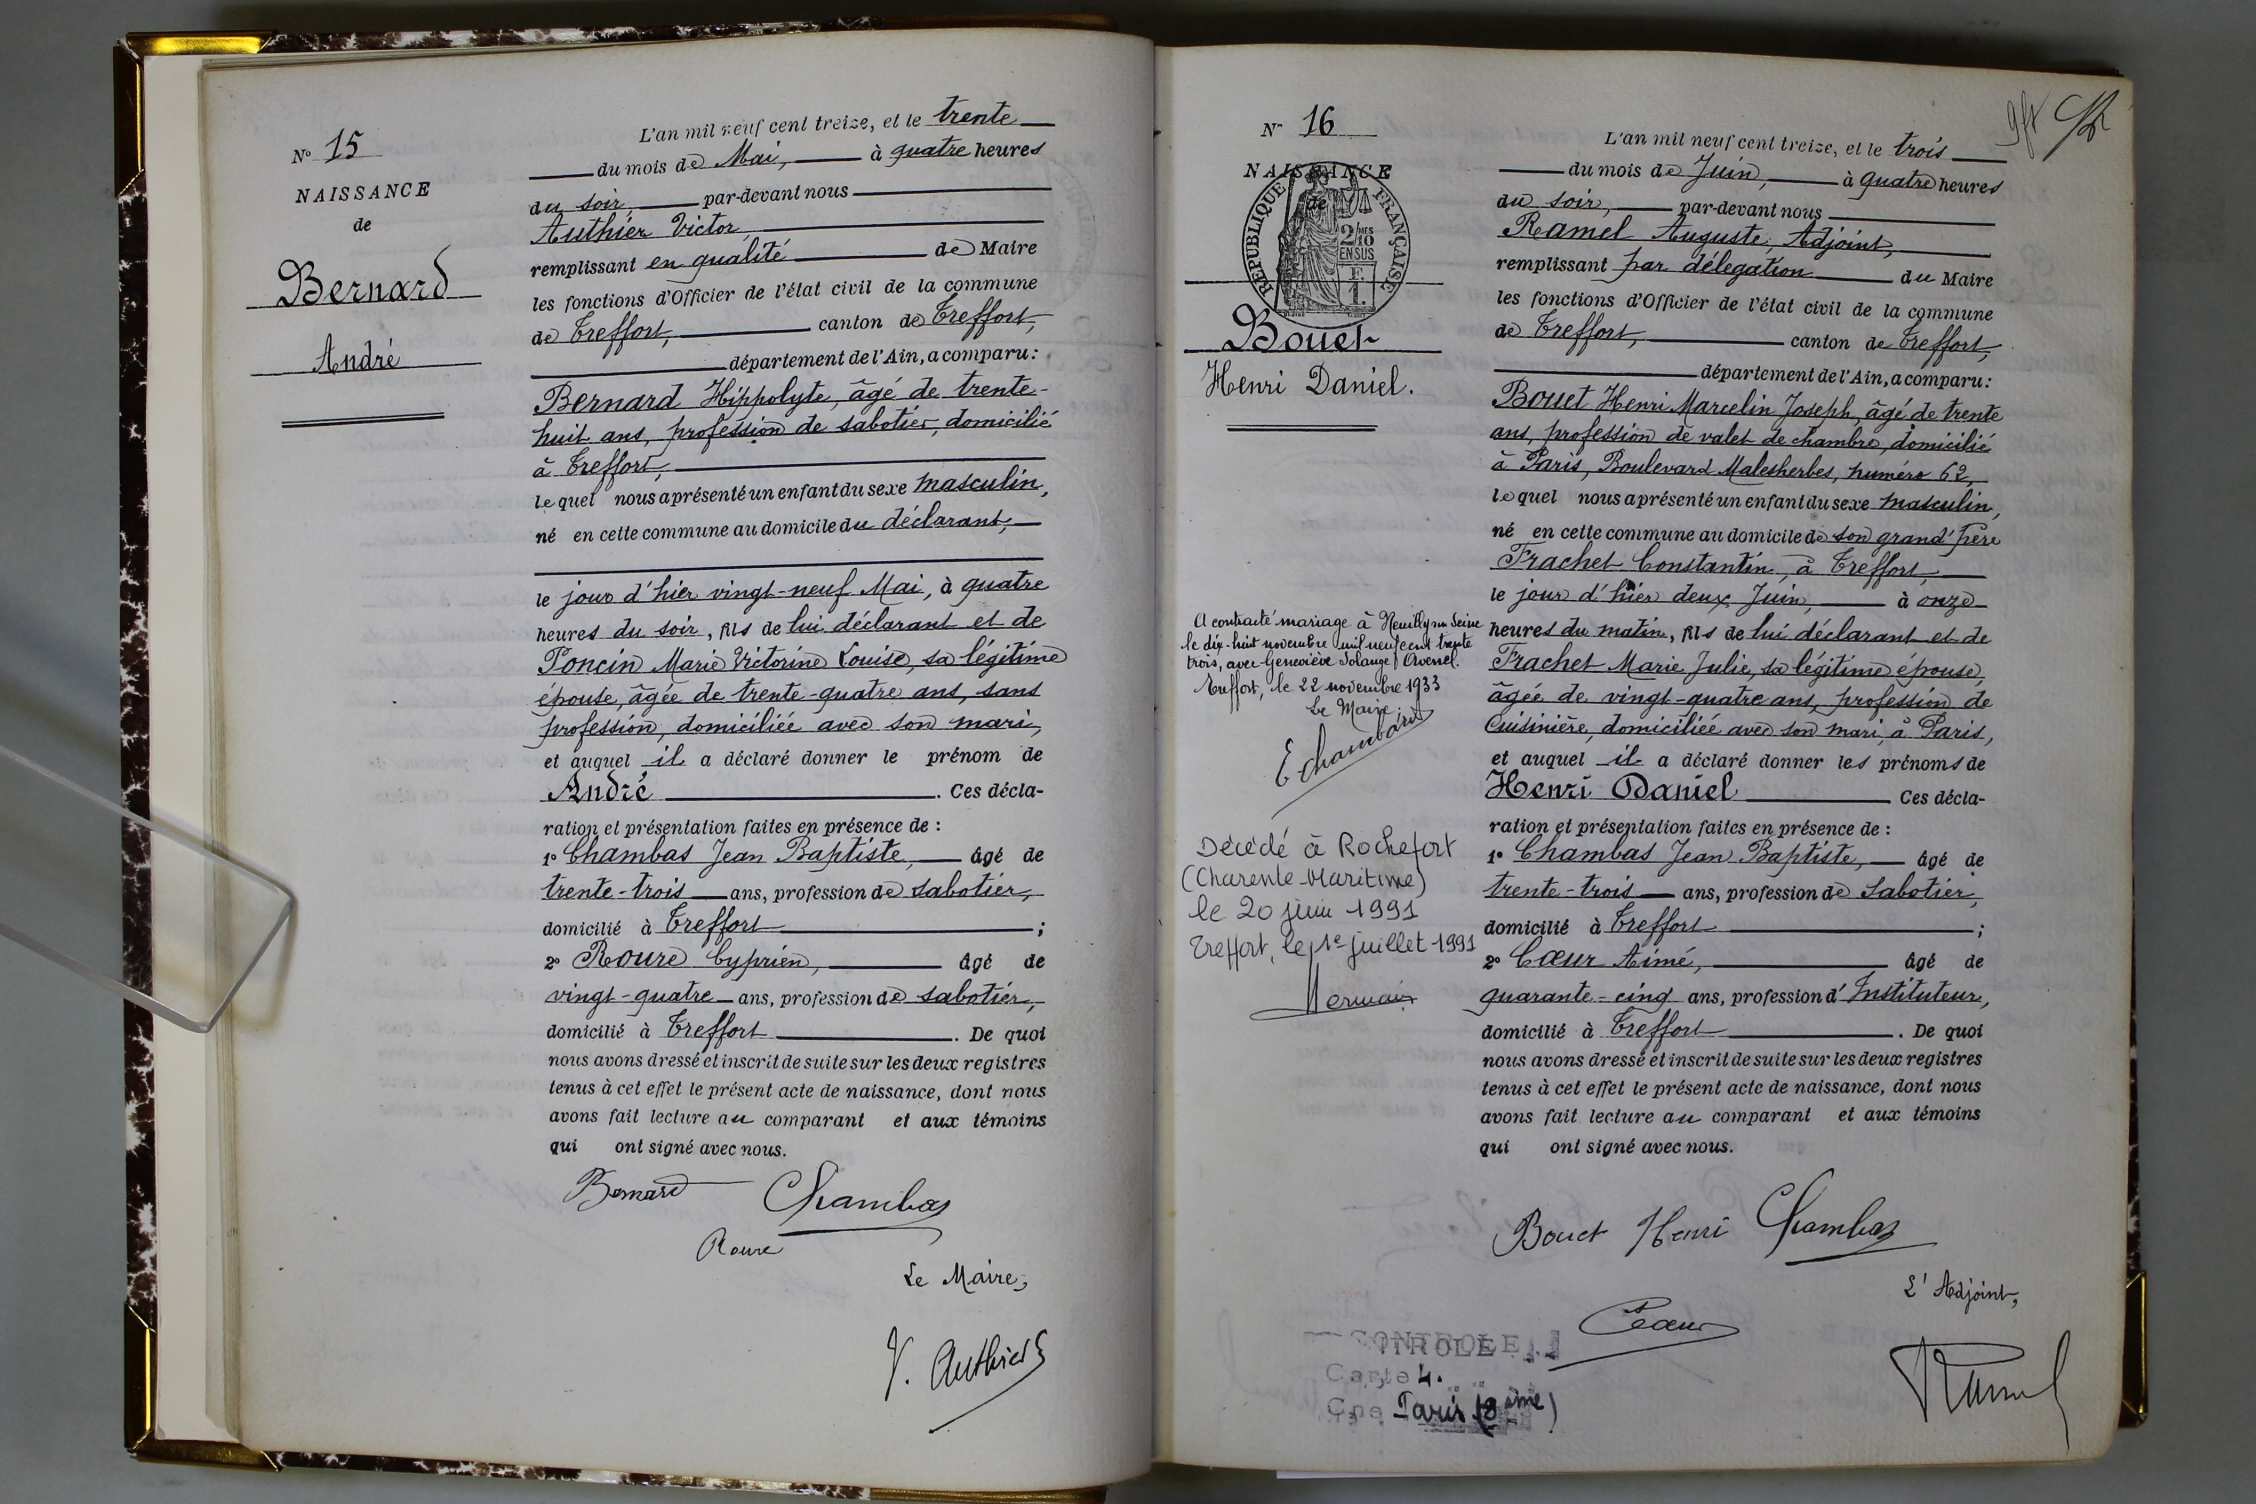 N° 15
NAISSANCE
de
Bernard
André
L'an mil neuf cent treize, et le trente
du mois de Mai, à quatre heures
du soir, par-devant nous
Authier Victor
remplissant en qualité de Maire
les fonctions d'Officier de l'état civil de la commune
de Treffort, canton de Treffort,
département de l'Ain, a comparu:
Bernard Hippolyte, âgé de trente-
huit ans, profession de sabotier, domicilié
à Treffort,
lequel nous a présenté un enfant du sexe masculin,
né en cette commune au domicile du déclarant,
le jour d'hier vingt-neuf Mai, à quatre
heures du soir, fils de lui déclarant et de
Poncin Marie Victorine Louise, sa légitime
épouse, âgée de trente-quatre ans, sans
profession, domiciliée avec son mari,
et auquel il a déclaré donner le prénom de
André. Ces décla-
ration et présentation faites en présence de :
1° Chambas Jean Baptiste, âgé de
trente-trois ans, profession de sabotier,
domicilié à Treffort ;
2° Roure Cyprien, âgé de
vingt-quatre ans, profession de sabotier,
domicilié à Treffort. De quoi
nous avons dressé et inscrit de suite sur les deux registres
tenus à cet effet le présent acte de naissance, dont nous
avons fait lecture au comparant et aux témoins
qui ont signé avec nous.
Bernard Chambas
Roure
Le Maire,
V. Authier
N° 16
NAISSANCE
de
RÉPUBLIQUE FRANÇAISE
2/10MES
EN SUS
F.
1.
Bouet
Henri Daniel.
A contracté mariage à Neuilly sur Seine
le dix-huit novembre mil neuf cent trente
trois, avec Geneviève Solange Avenel.
Treffort, le 22 novembre 1933
Le Maire
E Chambard
Décédé à Rochefort
(Charente-Maritime)
le 20 juin 1991
Treffort, le 1e juillet 1991
L'an mil neuf cent treize, et le trois
du mois de Juin, à quatre heures
du soir, par-devant nous
Ramel Auguste, Adjoint,
remplissant par délegation du Maire
les fonctions d'Officier de l'état civil de la commune
de Treffort, canton de Treffort,
département de l'Ain, a comparu:
Bouet Henri Marcelin Joseph, âgé de trente
ans, profession de valet de chambre, domicilié
à Paris, Boulevard Malesherbes, numéro 62,
lequel nous a présenté un enfant du sexe masculin,
né en cette commune au domicile de son grand'père
Frachet Constantin, à Treffort,
le jour d'hier deux Juin, à onze
heures du matin, fils de lui déclarant et de
Frachet Marie Julie, sa légitime épouse,
âgée de vingt-quatre ans, profession de
Cuisinière, domiciliée avec son mari, à Paris,
et auquel il a déclaré donner les prénoms de
Henri Daniel Ces décla-
ration et présentation faites en présence de :
1° Chambas Jean Baptiste, âgé de
trente-trois ans, profession de Sabotier,
domicilié à Treffort ;
2° Cœur Aimé, âgé de
quarante-cinq ans, profession d'Instituteur,
domicilié à Treffort. De quoi
nous avons dressé et inscrit de suite sur les deux registres
tenus à cet effet le présent acte de naissance, dont nous
avons fait lecture au comparant et aux témoins
qui ont signé avec nous.
Bouet Henri Chambas
L'Adjoint,
Cœur
Ramel
CONTROLE
Carte 4.
Cne Paris (8ème)